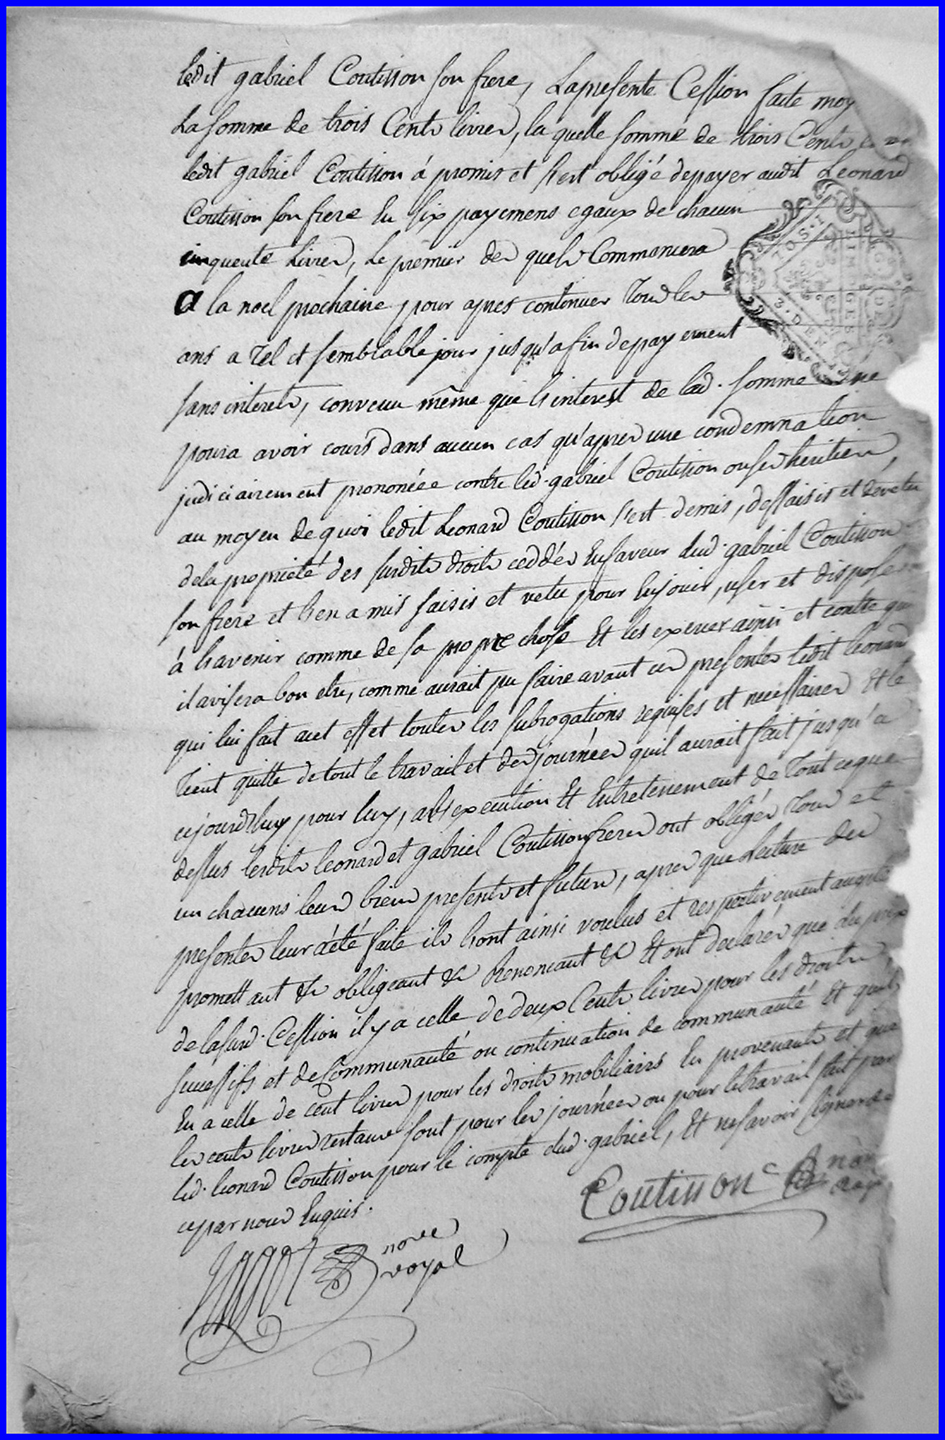 ledit gabriel Coutisson son frere, La presente Cession faite moy
La somme de trois Cents livres, la quelle somme de trois Cents
ledit gabriel Coutisson à promis et s'est obligé de payer audit Léonard
Coutisson son frere En six payemens egaux de chacun
cinquente Livres, Le premier des quels Commencera
a la noel prochaine pour apres continuer Tous les
ans a Tel et semblable jour jusqu'a fin de payement
sans interets, convenu même que l'interest de lad. somme ne
poura avoir cours dans aucun cas qu'apres une condemnation
judiciairement prononcée contre led. gabriel Coutisson ou ses heritiers,
au moyen de quoi ledit Léonard Coutisson s'est demis, dessaisis et devetu
de la propriété des susdits droits ceddés En faveur dud. gabriel Coutisson
son frere et l'en a mis saisis et vetu pour En jouir, user et disposer
à l'avenir comme de sa propre chose Et les exercer ainsi et contre qui
il avisera bon etre, comme aurait pu faire avant ces presentes ledit Leonard
qui lui fait a cet effet toutes les subrogations requises et necessaires Et le
Tient quitte de tout le travail et des journées qu'il aurait fait jusqu'a
aujourdhuy pour luy, a l'execution Et Entretenement de Tout ce que
dessus lesdits leonard et gabriel Coutisson freres ont obligés Tous et
un chacuns leurs biens presents et futurs, apres que Lecture des
presentes leur a été faite ils l'ont ainsi voulus et respectivement
promettant & obligeant & Renoncant & Et ont declarés que du prix
de la susd. Cession il y a celle de deux Cents livres pour les droits
successifs et de Communauté ou continuation de communauté Et qu'il
En a celle de cent livres pour les droits mobiliairs En provenants et que
les cents livres restants sont pour les journées ou pour le travail fait par
led. leonard Coutisson pour le compte dud. gabriel, Et ne savoir signer de
ce par nous Enquis.
Coutisson
nore
royal